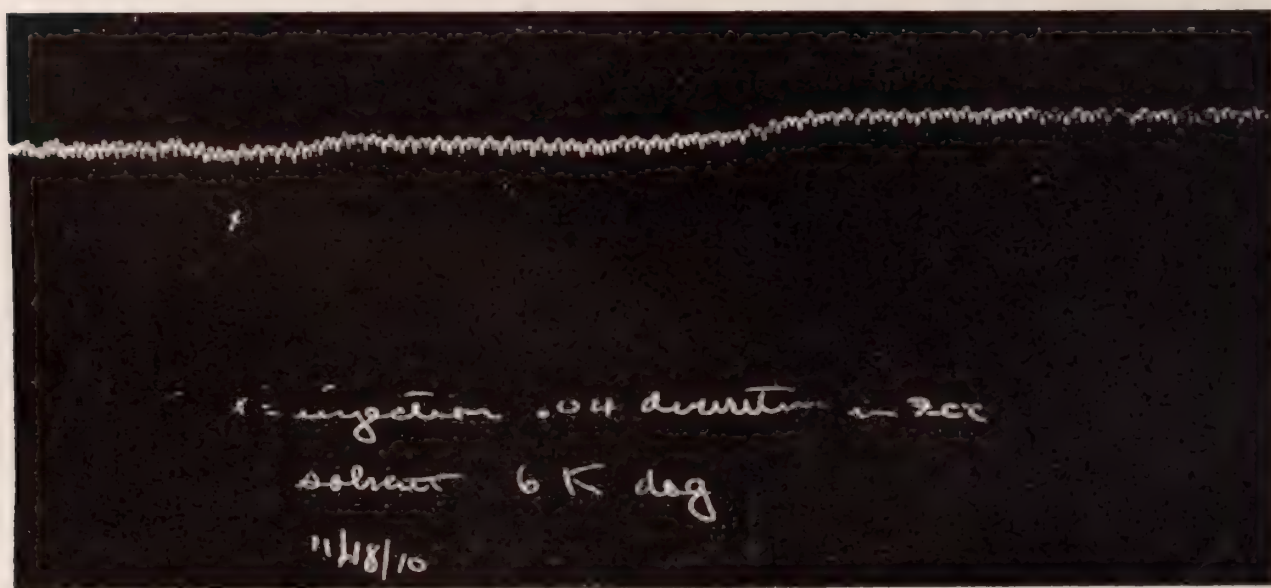 x
x = injection .04 diuretin in 7cc
solvent 6 K dog
11/18/10